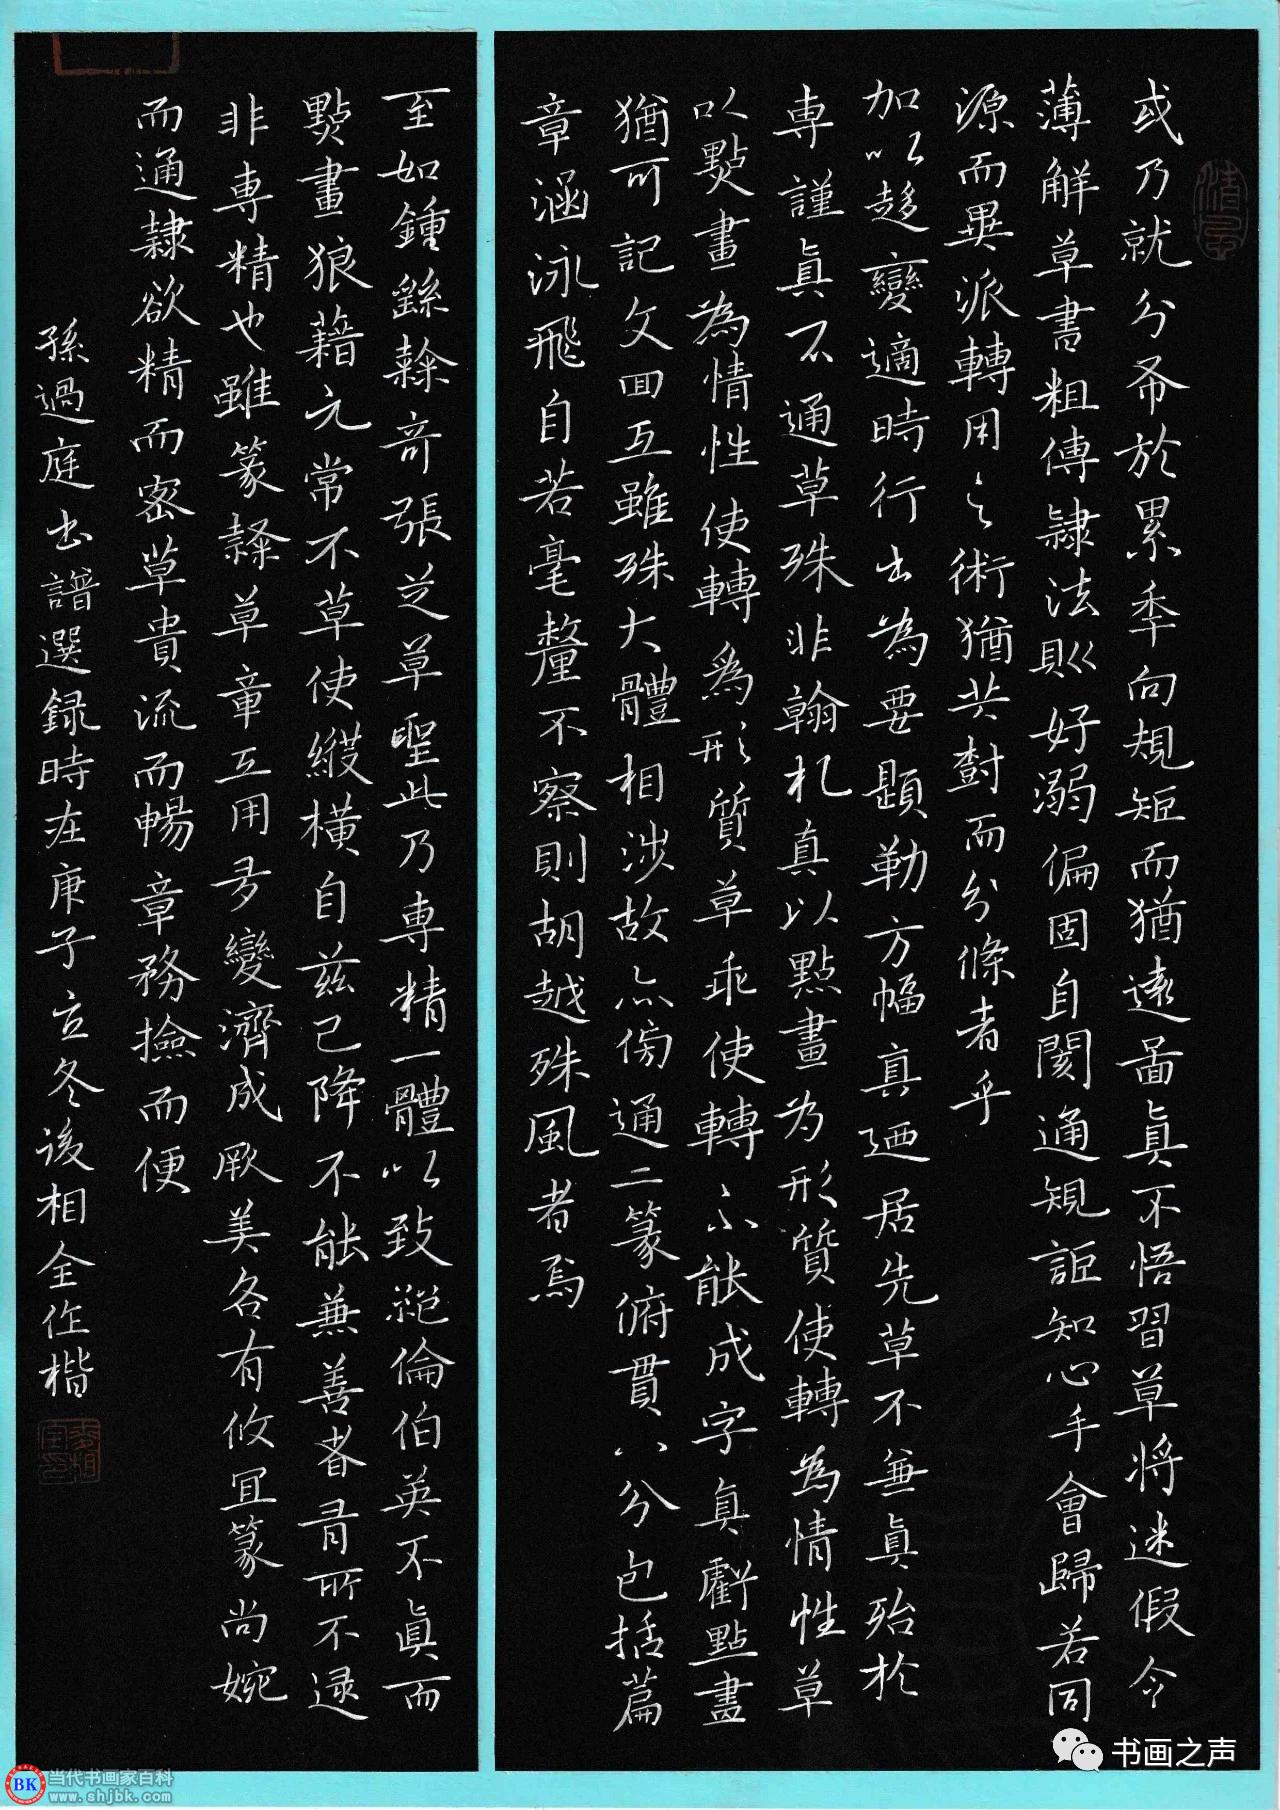 或乃就分布於累年向規矩而猶遠啚真不悟習草將迷假令
薄解草書粗傳隸法則好溺偏固自閡通規詎知心手會歸若同
源而異派轉用之術猶共樹而分條者乎
加以趍變適時行出為要題勒方幅真廼居先草不兼真殆於
專謹真不通草殊非翰札真以點畫為形質使轉為情性草
以點畫為情性使轉為形質草乖使轉不能成字真虧點畫
猶可記文囬互雖殊大體相涉故亦傍通二篆俯貫八分包括篇
章涵泳飛自若毫釐不察則胡越殊風者焉
至如鍾繇隸奇張芝草聖此乃專精一體以致絕倫伯英不真而
點畫狼藉元常不草使縱橫自茲已降不能兼善者有所不逮
非專精也雖篆隸草章互用多變濟成厥美各有攸宜篆尚婉
而通隸欲精而密草貴流而暢章務撿而便
孫過庭书譜選録時在庚子立冬後相全作楷
书画之声
BK
当代书画家百科
www.shjbk.com